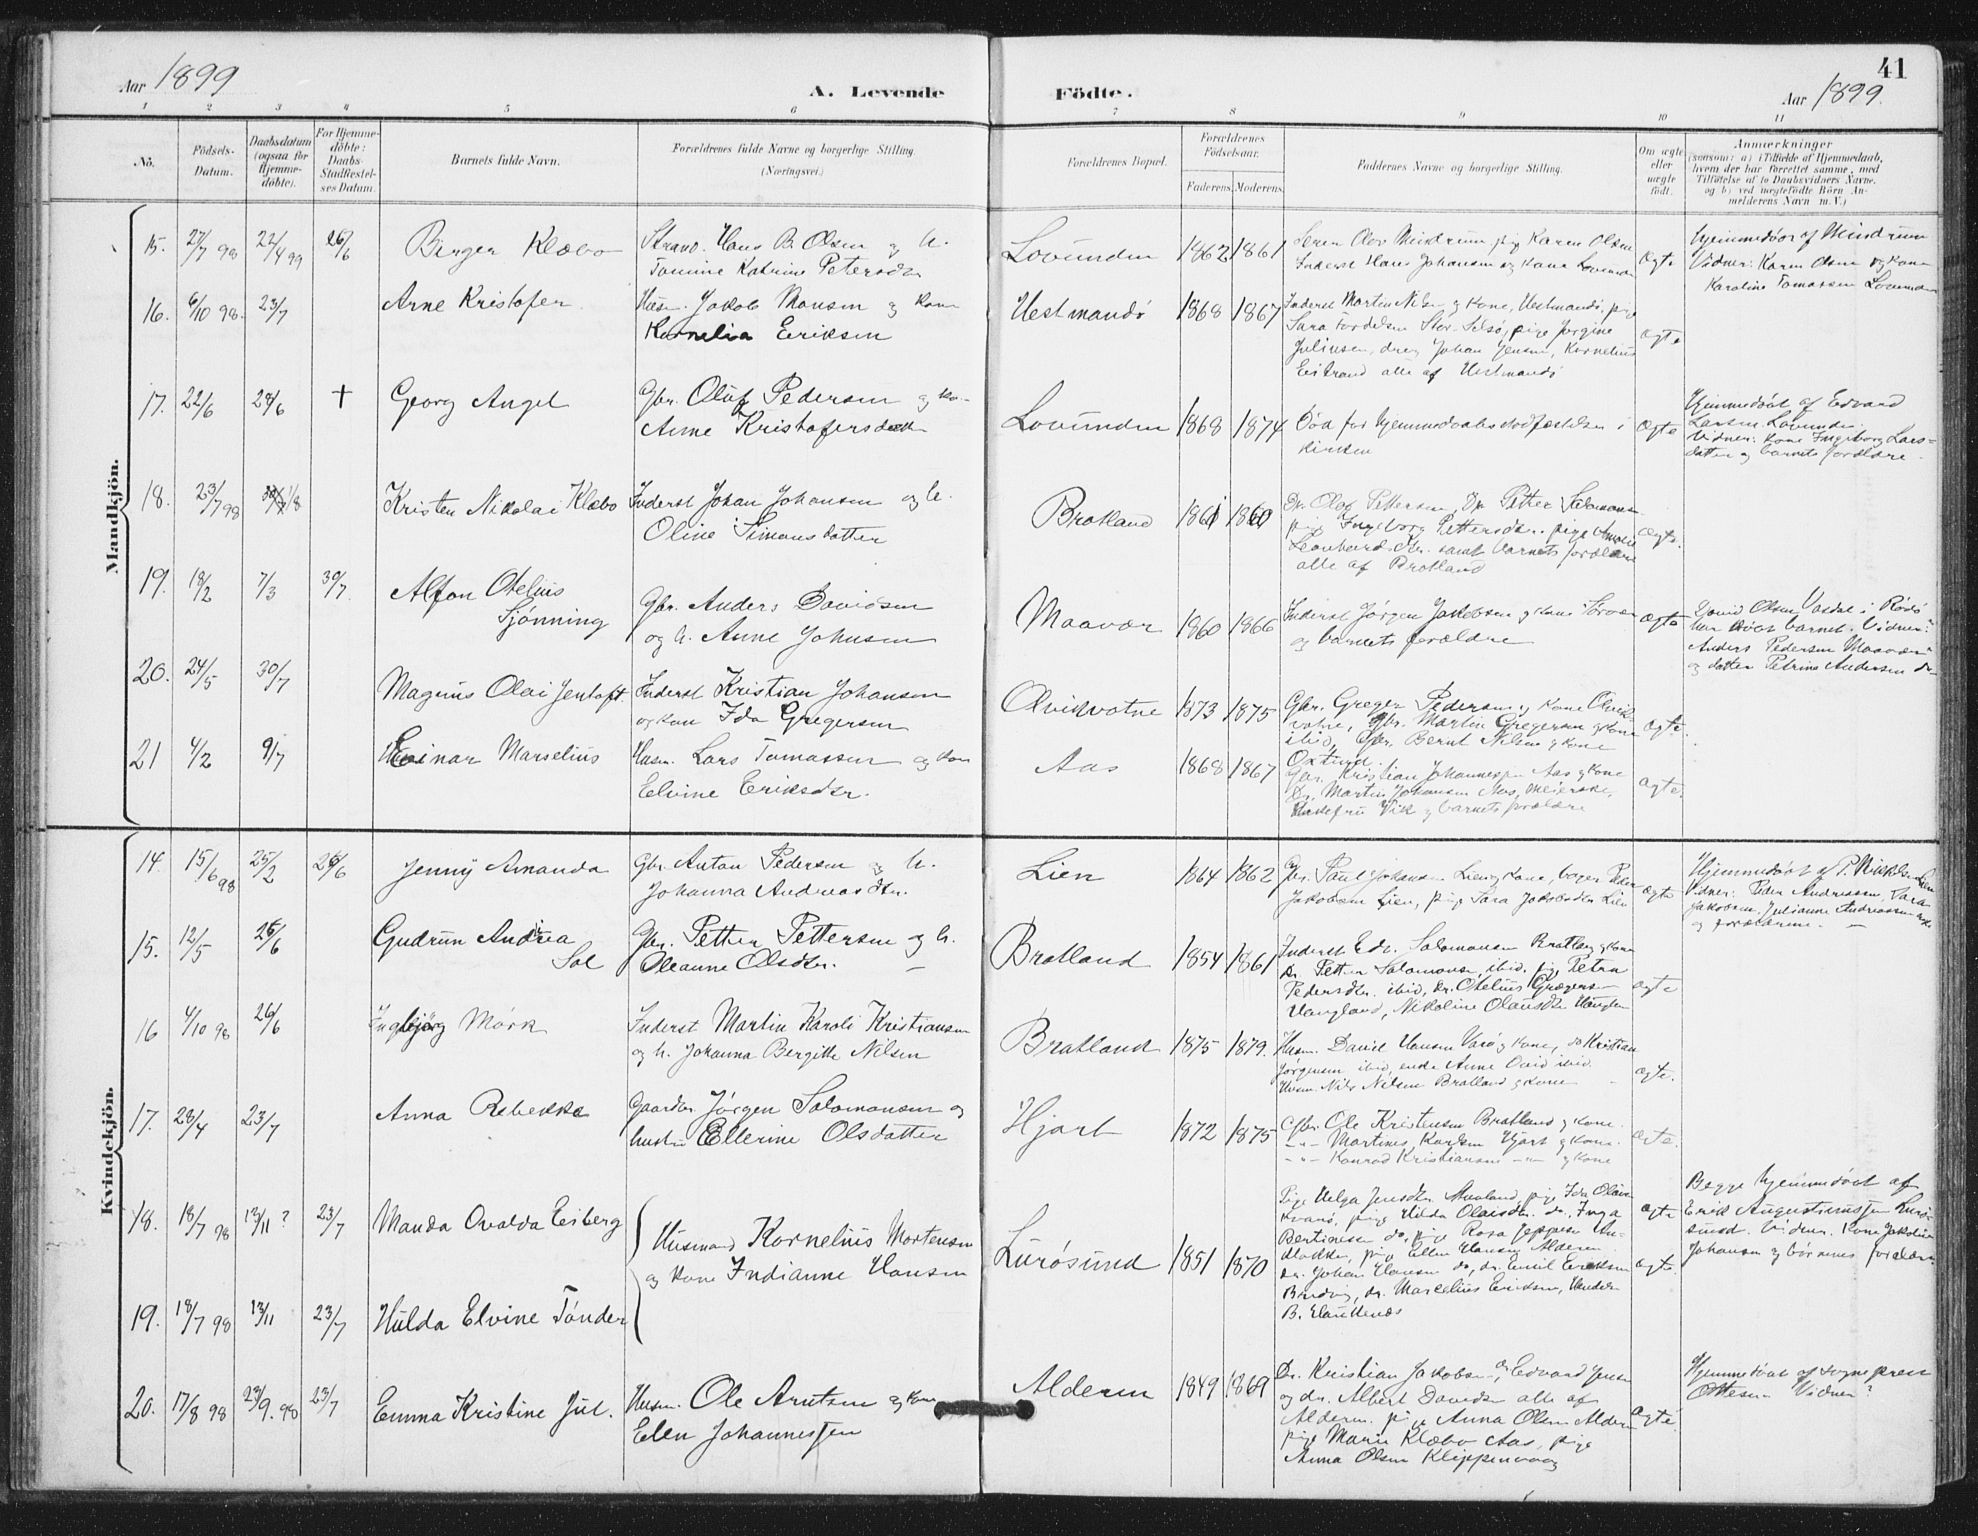 Aar 1899
A. Levende
Födte.
41
Aar 1899.
1 2 3 4 5 6 7 8 9 10 11
No.
Födsels-Datum.
Daabsdatum (ogsaa for Hjemme-döbte).
For Hjemme-döbte: Daabs-Stadfæstel-ses Datum.
Barnets fulde Navn.
Forældrenes fulde Navne og borgerlige Stilling. (Næringsvei.)
Forældrenes Bopæl.
Forældrenes Födselsaar.
Faderens. Moderens.
Faddernes Navne og borgerlige Stilling.
Om ægte eller uægte födt.
Anmærkninger
(saasom: a) i Tilfælde af Hjemmedaab,
hvem der har forrettet samme, med
Tilföielse af to Daabsvidners Navne.
og b) ved uægtefödte Börn An-
melderens Navn m. V.)
Mandkjön.
15. 27/7 98 22/4 99 26/6 Birger Klæbo
Strand. Hans B. Olsen og h.
Tomine Katrine Petersdtr
Lovunden 1862 1861
Søren Olov Meindrum, pige Karen Olsen
Inderst Hans Johansen og kone Lovunden
ægte
Hjemmedøbt af Meindrum
Vidner: Karen Olsen og kone
Karoline Tomassen Lovunden
16. 6/10 98. 23/7 Arne Kristofer
Husm. Jakob Monsen og kone
Kornelia Eriksen
Hestmandø 1868 1867
Inderst Morten Nilsen og kone, Hestmandø, pige
Sara Tordelsen Stor-Selsø, pige Jørgine
Juliussen, dreng Johan Jensen, Kornelius
Eistrand alle af Hestmandø
ægte
17. 22/6 24/6 † Georg Angel
Gbr. Oluf Pedersen og ko-
Anne Kristofersdatter
Lovunden 1868 1874
Død før hjemmedaabs stadfæstelsen i
kirken
ægte
Hjemmedøbt af Edvard
Larsen Lovunden.
Vidner: kone Ingeborg Lars-
datter og barnets forældre.
18. 23/7 98 1/8 Kristen Nikolai Klæbo
Inderst Johan Johansen og h.
Oline Simonsdatter
Bratland 1861 1860
Dr. Olof Pettersen, Dr. Petter Salomonsen
pige Ingeborg Pettersdtr. pige Amalie
Leonhardsdtr. samt barnets forældre
alle af Bratland
ægte.
19. 18/2 7/3 30/7 Alfon Otelius
Sjønning
Gbr. Anders Davidsen
og h. Anne Johnsen
Maavær 1860 1866
Inderst Jørgen Jakobsen og kone Sørvær
og barnets forældre
ægte
David Olsen Vasdal i Rødø
har døbt barnet. Vidner:
Anders Pedersen Maavær
og datter Petrine Andersen do
20. 24/5 30/7 Magnus Olai Jentoft
Inderst Kristian Johansen
og kone Ida Gregersen
Olvikvatne 1873 1875
Gbr. Greger Pedersen og kone Olvik-
vatne, Gbr. Martin Gregersen og kone
ibid, Gbr. Bernt Nilsen og kone
ægte.
21 4/2 9/7 Einar Marselius
Husm. Lars Tomassen og kone
Elvine Eriksdtr.
Aas 1868 1867
Gbr. Kristian Johannessen Aas og kone
Dr. Martin Johansen Aas, Meierske,
Vik og barnets forældre
ægte.
Kvindekjön.
14. 15/6 98 25/2 26/6 Jenny Amanda
Gbr. Anton Pedersen og h.
Johanna Andreasdtr.
Lien 1864 1862
Gbr. Paul Johansen Lien og kone, Peder
Jakobsen Lien, pige Sara Jakobsdtr Lien
ægte
Hjemmedøbt af P. Mikkelsen Lien
Vidner: Peder Andreassen, Sara
Jakobsen, Julianne Andreassen
og forældrene. —
15. 12/5 26/6 Gudrun Andrea
Sol
Gbr. Petter Pettersen og h.
Oleanne Olsdtr. —
Bratland 1854 1861
Inderst Edv. Salomonsen Bratland og kone
Dr. Petter Salomonsen, ibid, pige Petra
Pedersdtr. ibid, dr. Otelius Grægersen
Haugland, Nikoline Olausdtr Haugland
ægte
16 4/10 98 26/6 Ingebjørg Mørk
Inderst Martin Karoli Kristiansen
og h. Johanna Bergitte Nilsen
Bratland 1875 1879.
Husm. David Hansen Varø og kone, do Kristian
Jørgensen ibid, enke Anne Ovid ibid.
Husm. Nils Nilsen Bratland og kone
ægte.
17. 23/4 23/7 Anna Rebekka
Gaardbr. Jørgen Salomonsen og
hustru Ellerine Olsdatter
Hjart 1872 1875
Gbr. Ole Kristensen Bratland og kone.
-"- Martines Karlsen Hjart og kone.
-"- Konrad Kristiansen -"- og kone
ægte.
18. 18/7 98 13/11 ? 23/7 Manda Ovalda Esberg
Husmand Kornelius Mortensen
og kone Indianne Hansen
Lurøsund 1851 1870
Pige Helga Jensdtr pige Ida
pige Hilda Olaisdtr. do, Inga
Bertinesen do, pige Rosa Jeppesen
pige Ellen Hansen Alderen
Dr. Johan Hansen do, dr. Emil Eriksen
dr. Marcelius Eriksen,
ægte
ægte.
Begge hjemmedøbt af
Erik Augustinussen Lurø-
sund. Vidner: Kone Jakobine
Johansen og børnenes forældre
19. 18/7 98 13/11 23/7 Hulda Elvine Tønder
20. 17/8 98 23/9. 98 23/7 Emma Kristine Jul.
Husm. Ole Arntsen og kone
Elen Johannessen
Alderen 1849 1869
Dr. Kristian Jakobsen, dr. Edvard Jensen
og dr. Albert Davidsen alle af
Alderen, pige Anna Olsen Alderen
pige Marie Klæbo Aas, pige
Anna Olsen Klippenvaag
ægte.
Hjemmedøbt af sogneprest
Ottesen Vidner?